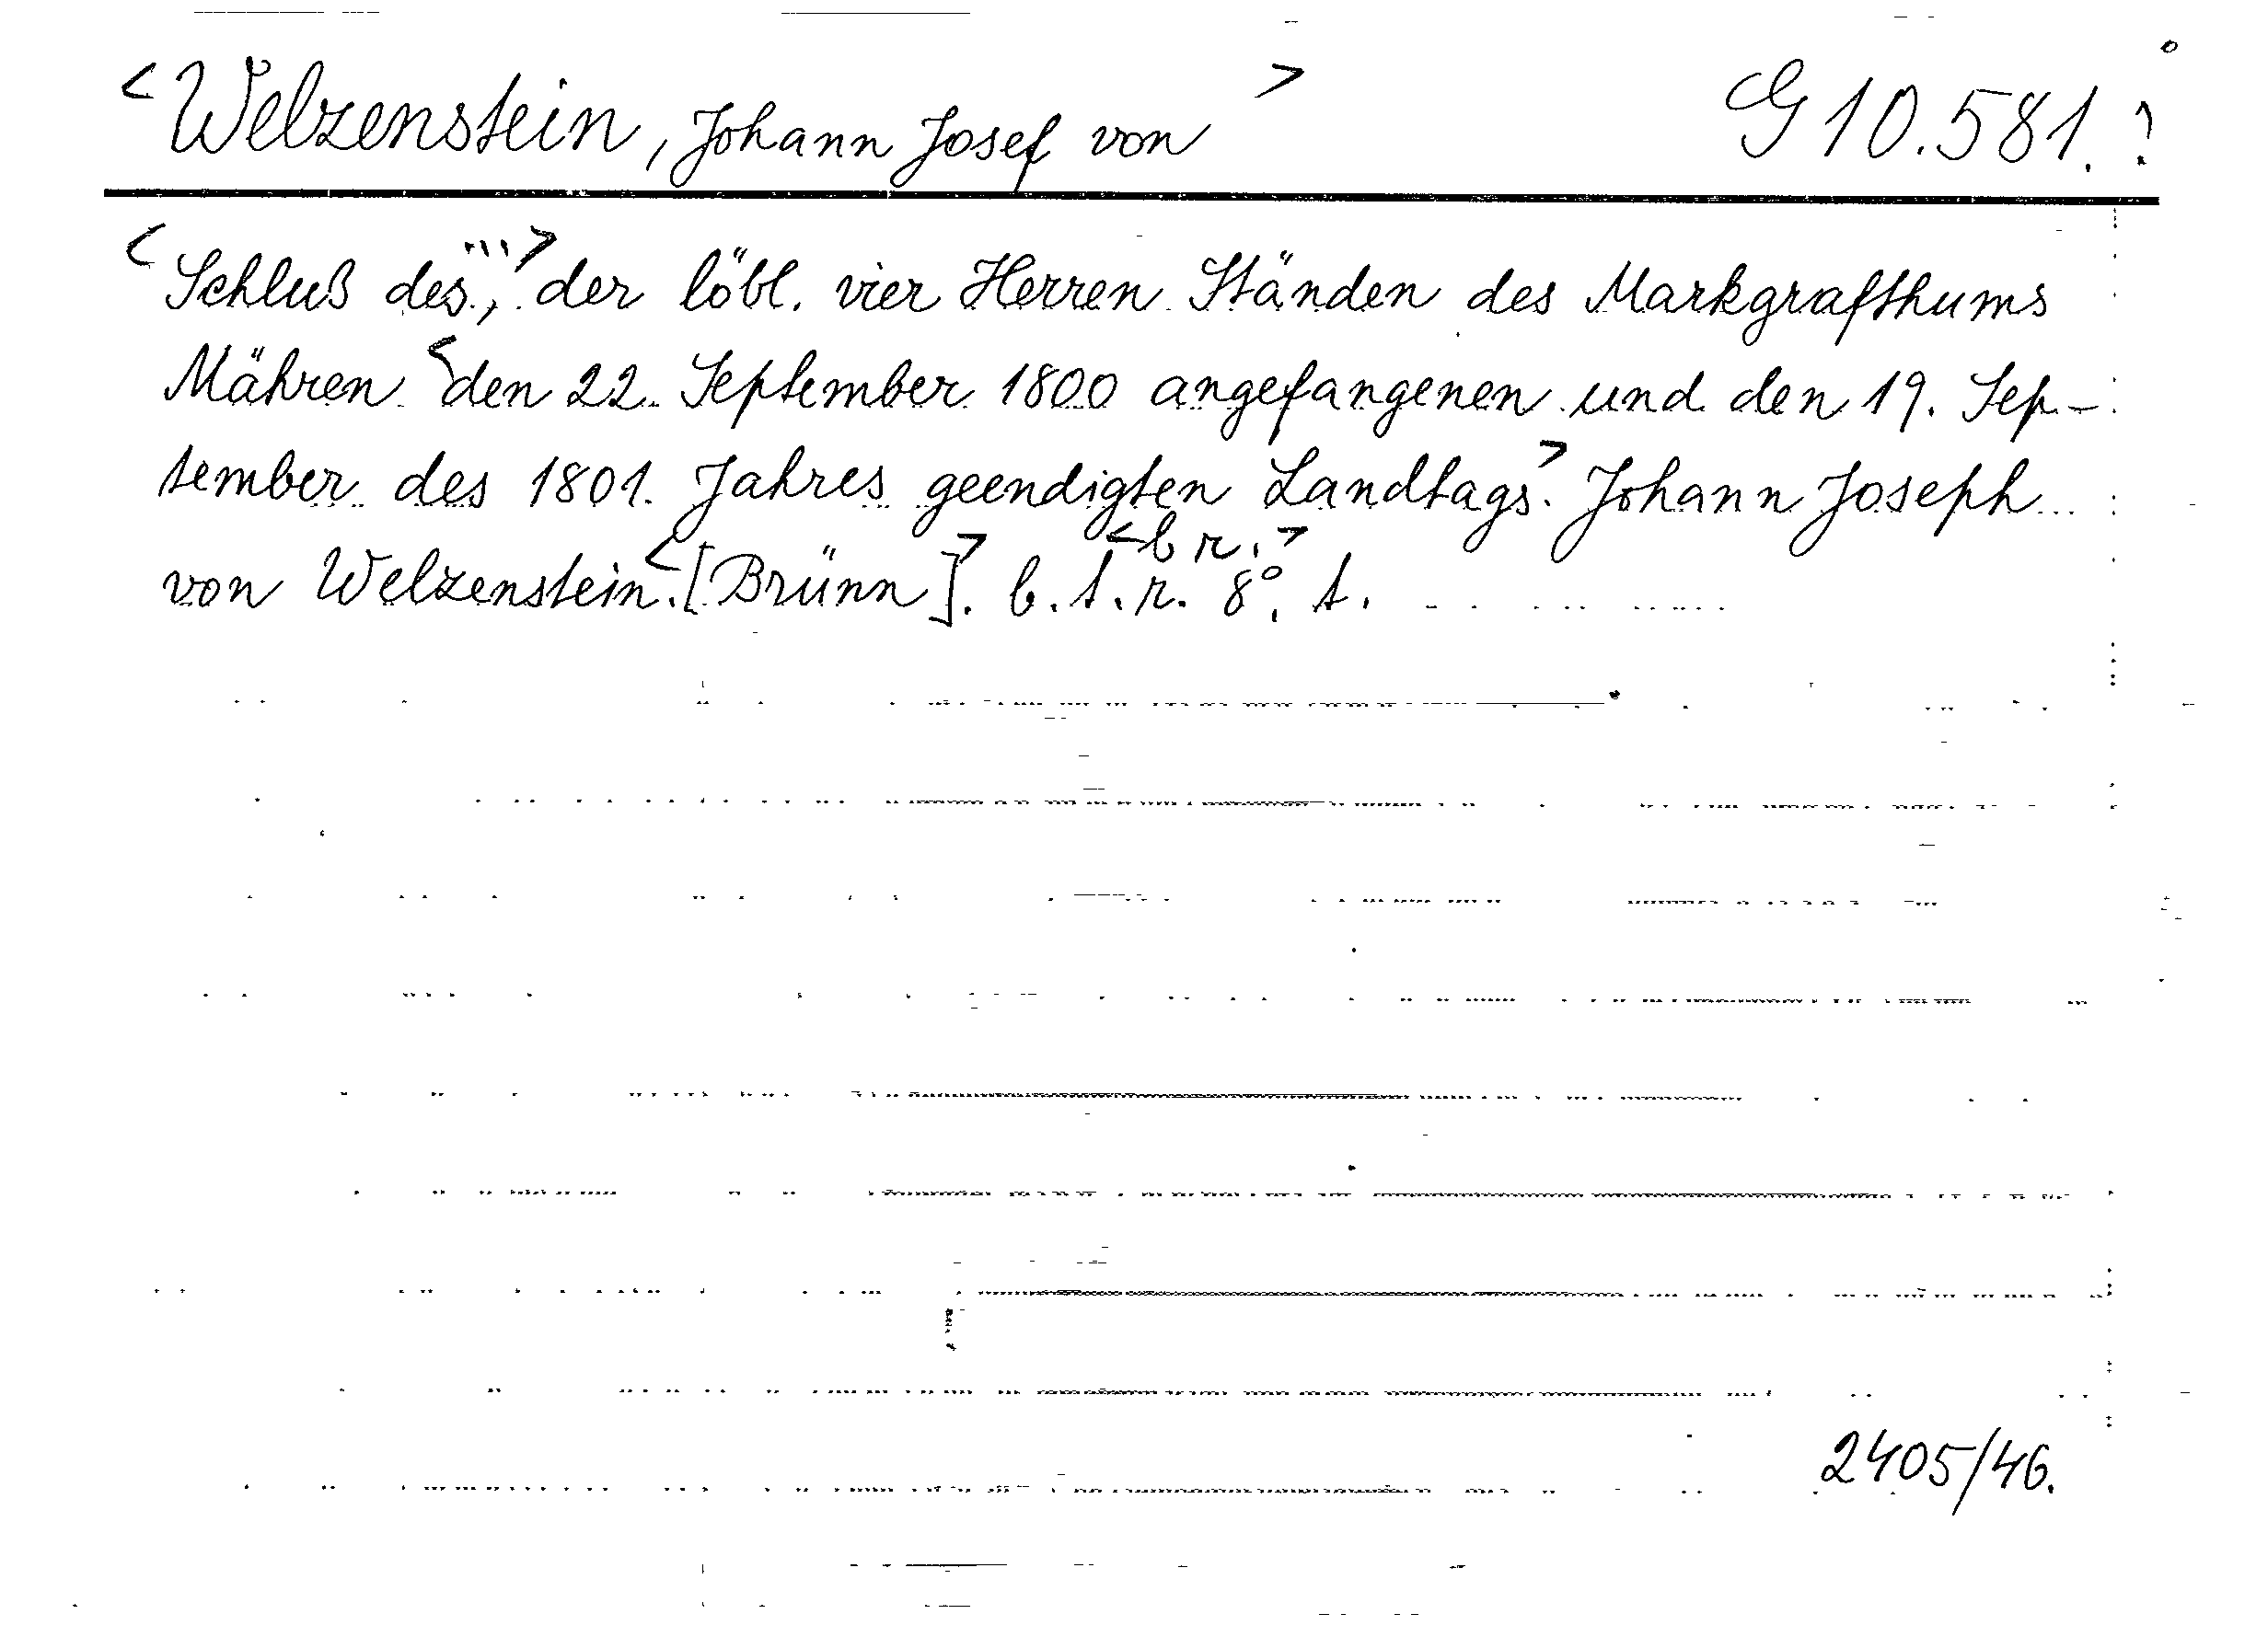 <Welzenstein, Johann Josef von > G 10.581.?
<Schluß des,...> der löbl. vier Herren Ständen des Markgrafthums
Mähren <den 22. September 1800 angefangenen und den 19. Sep-
tember des 1801. Jahres geendigten Landtags.> Johann Joseph
<b r.>
von Welzenstein.<[Brünn].> b. t. r. 8°, t.
2405/46.